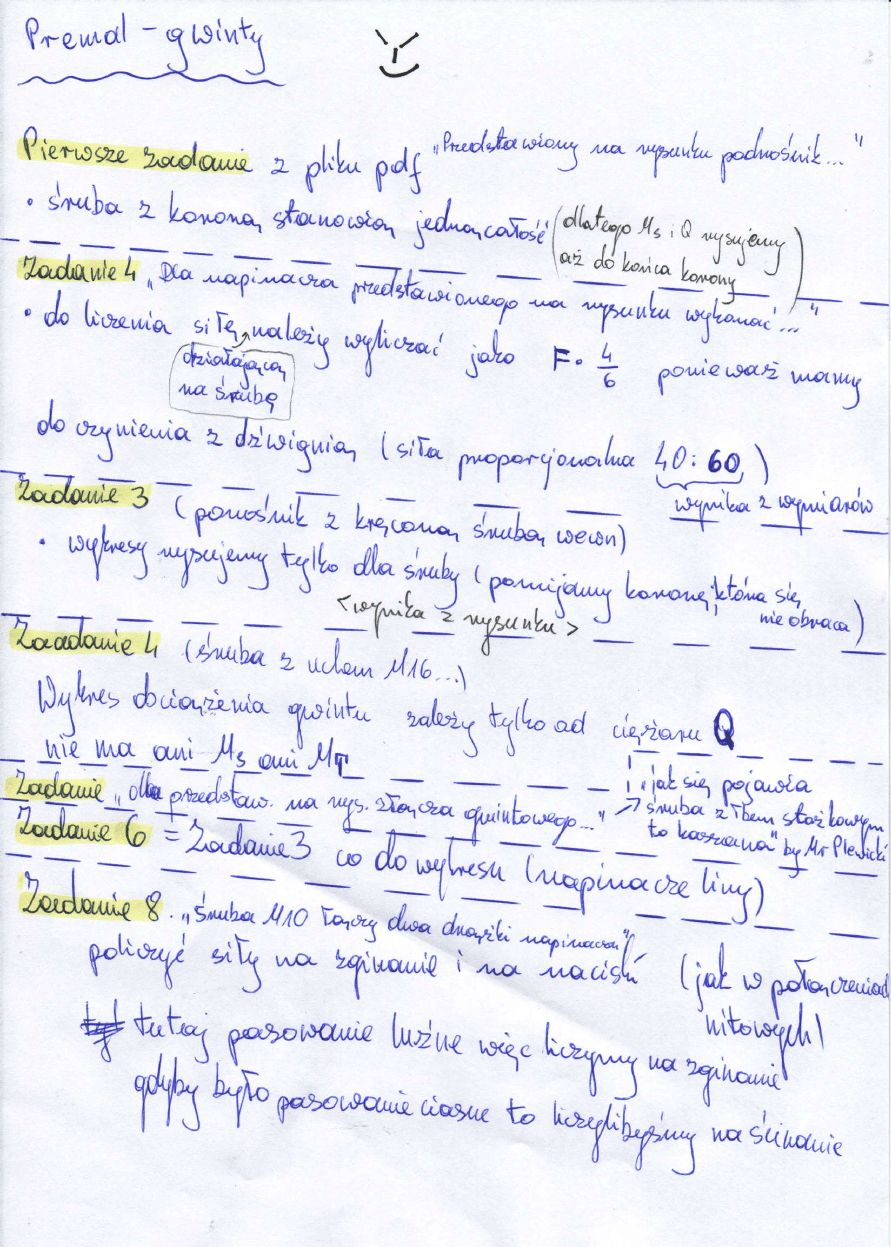 Premal - gwinty
Pierwsze zadanie z pliku pdf "Przedstawiony na rysunku podnośnik..."
• śruba z koroną stanowią jedną całość (dlatego Ms i Q rysujemy
aż do końca korony)
Zadanie 4 "Dla napinacza przedstawionego na rysunku wykonać..."
• do liczenia siłę należy wyliczać jako F · 4/6 ponieważ mamy
działającą
na śrubę
do czynienia z dźwignią (siła proporcjonalna 40:60)
wynika z wymiarów
Zadanie 3 (ponośnik z kręconą śrubą wewn)
• wykresy rysujemy tylko dla śruby (pomijamy koronę, która się
nie obraca)
<wynika z rysunku>
Zadanie 4 (śruba z uchem M16...)
Wykres obciążenia gwintu zależy tylko od ciężaru Q
nie ma ani Ms ani MT
Zadanie "dla przedstaw. na rys. złącza gwintowego..."
"jak się pojawia
śruba z łbem stożkowym
to kaszana" by Mr Plewicki
Zadanie 6 = Zadanie 3 co do wykresu (napinacze liny)
Zadanie 8. "Śruba M10 łączy dwa drążki napinacza"
policzyć siły na zginanie i na nacisk (jak w połączeniach
nitowych)
tutaj pasowanie luźne więc liczymy na zginanie
gdyby było pasowanie ciasne to liczylibyśmy na ścinanie